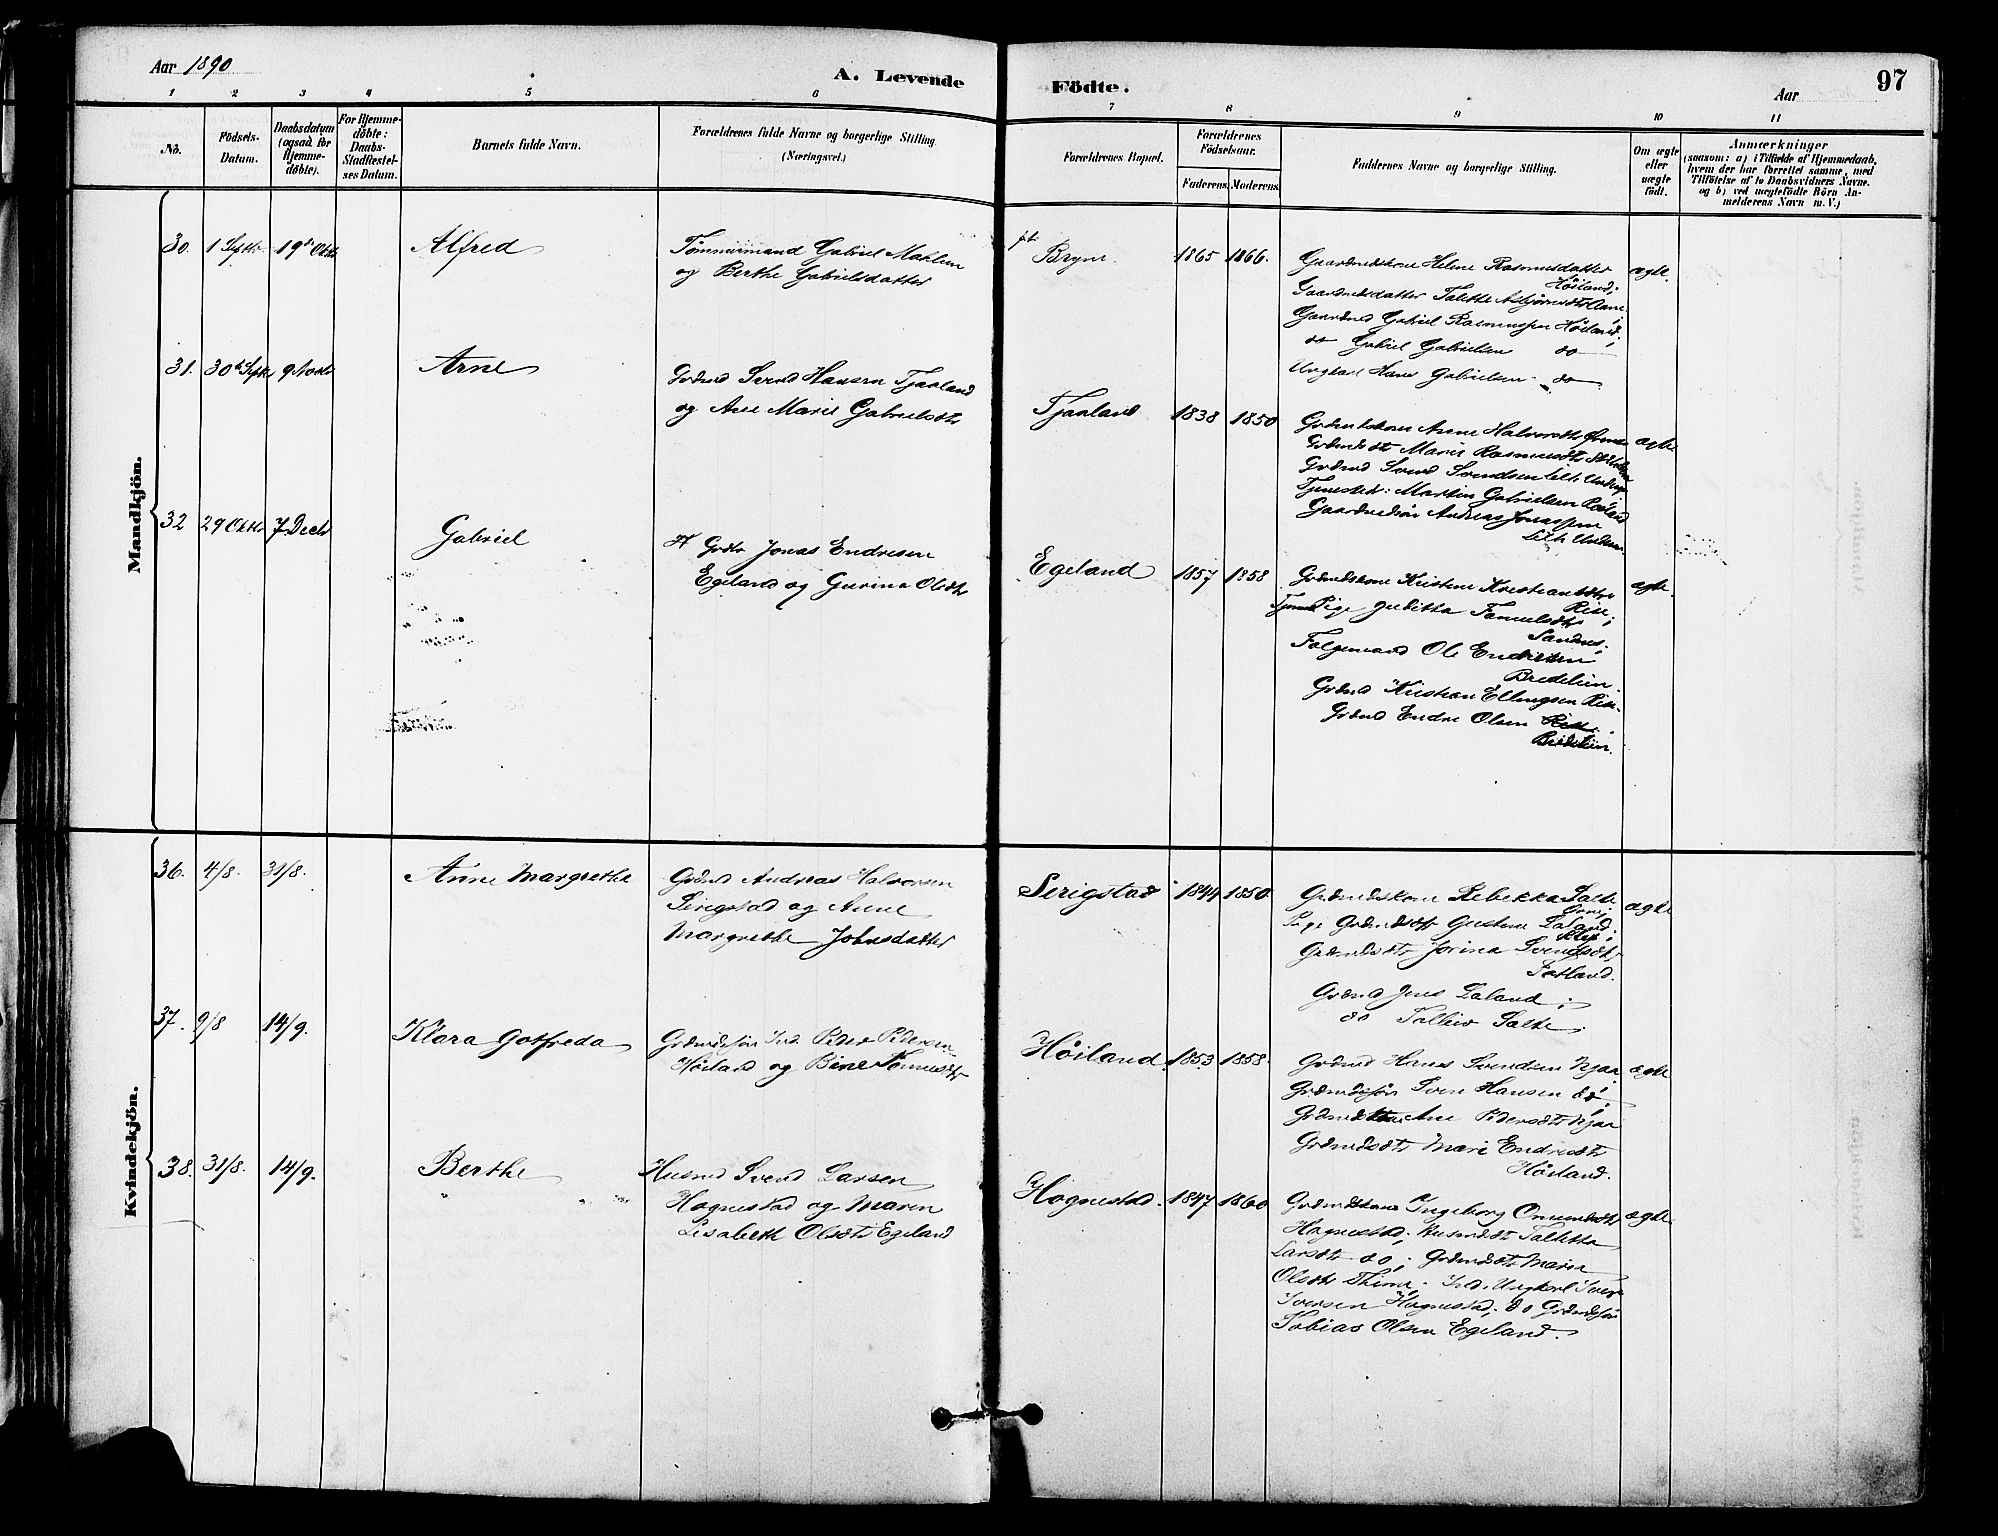 Aar 1890
A. Levende
Födte.
Aar
97
1 2 3 4 5 6 7 8 9 10 11
No.
Födsels-
Datum.
Daabsdatum
(ogsaa for
Hjemme-
döbte).
For Hjemme-
döbte:
Daabs-
Stadfæstel-
ses Datum.
Barnets fulde Navn.
Forældrenes fulde Navne og borgerlige Stilling
(Næringsvei.)
Forældrenes Bopæl.
Forældrenes
Födselsaar.
Faderens. Moderens.
Faddernes Navne og borgerlige Stilling.
Om ægte
eller
uægte
födt.
Anmærkninger
(saasom: a) i Tilfælde af Hjemmedaab,
hvem der har forrettet samme, med
Tilföielse af to Daabsvidners Navne.
og b) ved uægtefödte Börn An-
melderens Navn m. V.)
Mandkjön.
30. 1 Septr. 19de Oktr Alfred
Tømmermand Gabriel Mæhlum
og Berthe Gabrielsdatter
pt
Bryne. 1865 1866.
Gaardmdskone Helene Rasmusdatter
Höiland;
Gaardmdsdatter Talette Asbjørnsdtr Aane;
Gaardmd Gabriel Rasmussen Höiland;
do Gabriel Gabrielsen do
Ungkarl Hans Gabrielsen do
ægte.
31. 30te Septr 9 Novbr Arne
Grdmd Svend Hansen Tjaaland
og Ane Marie Gabrielsdtr
Tjaaland 1838 1850
Grdmdskone Anne Halvorsdtr
Grdmdsdtr Marie Rasmusdtr
Grdmd Svend Svendsen Lille Undem
Tjenestedr: Martin Gabrielsen
Gaardmdssön Andreas Jonassen
Lille Undem
ægte
32 29 Oktbr 7 Decbr Gabriel
Grdbr Jonas Endresen
Egeland og Gurina Olsdtr
Egeland 1857 1858
Grdmdskone Kristine Kristiansdtr
Rise;
Tjenes Pige Juditta Samuelsdtr
Sandnes;
Folgemand Ole Endresen
Bredelien.
Grdmd Kristian Ellingsen Rise
Grdmd Endre Olsen
Bredelien.
ægte.
Kvindekjön.
36. 4/8. 31/8. Anne Margrethe
Grdmd Andreas Halvorsen
Serigstad og Anne
Margrethe Johnsdatter
Serigstad 1844 1850
Grdmdskone Rebekka Salte
Pige Grdmdsdtr Gustava Laland
Klep;
Grdmdsdtr Jorina Svendsdtr
Fotland.
Grdmd Jens Laland;
do Tolleiv Salte.
ægte
37. 9/8 14/9. Klara Gotfreda
Grdmdssön Ind. Peder Pedersen
Höiland og Bine Tønnesdtr
Höiland 1853 1858.
Grdmd Hans Svendsen Njaa
Grdmdssön Sven Hansen do;
Grdmdskone Ane Pedersdtr Njaa
Grdmdsdtr Mari Endresdtr
Höiland.
ægte
38. 31/8. 14/9. Berthe
Husmd Svend Larsen
Hognestad og Maren
Lisabeth Olsdtr Egeland
Hognestad. 1847 1860
Grdmdskone Ingeborg Omundsdtr
Hognestad; Husmdsdtr Talletta
Larsdtr do; Grdmdsdtr Maren
Olsdtr Thime. Ind. Ungkarl Iver
Iversen Hognestad; do Grdmdssön
Tobias Olsen Egeland.
ægte.